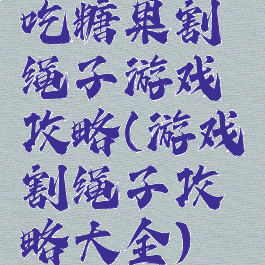 吃糖果割
绳子游戏
攻略(游戏
割绳子攻
略大全)